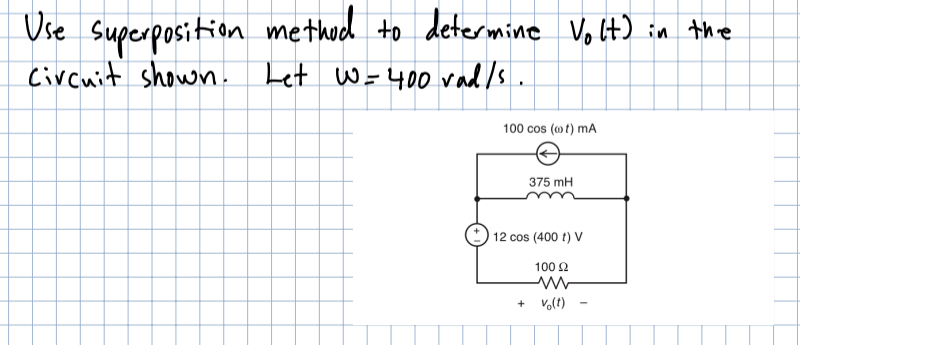 Use Superposition method to determine Vo(t) in the
circuit shown. Let ω = 400 rad/s.
100 cos (ω t) mA
375 mH
+
−
12 cos (400 t) V
100 Ω
+ vo(t) −